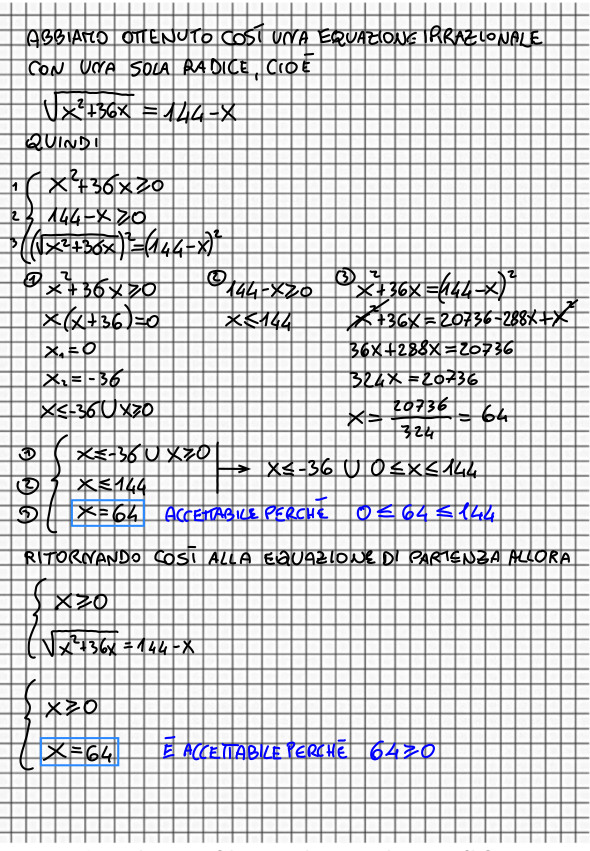 ABBIAMO OTTENUTO COSÌ UNA EQUAZIONE IRRAZIONALE
CON UNA SOLA RADICE, CIOÈ
√(x²+36x) = 144-x
QUINDI
1 { x²+36x ≥ 0
2 { 144-x ≥ 0
3 { (√(x²+36x))² = (144-x)²
① x²+36x ≥ 0 ② 144-x ≥ 0 ③ x²+36x = (144-x)²
x(x+36) = 0 x ≤ 144 x²+36x = 20736-288x+x²
x₁ = 0 36x+288x = 20736
x₂ = -36 324x = 20736
x ≤ -36 ∪ x ≥ 0 x = 20736/324 = 64
① { x ≤ -36 ∪ x ≥ 0 → x ≤ -36 ∪ 0 ≤ x ≤ 144
② { x ≤ 144
③ { x = 64 ACCETTABILE PERCHÈ 0 ≤ 64 ≤ 144
RITORNANDO COSÌ ALLA EQUAZIONE DI PARTENZA ALLORA
{ x ≥ 0
{ √(x²+36x) = 144-x
{ x ≥ 0
{ x = 64 È ACCETTABILE PERCHÈ 64 ≥ 0